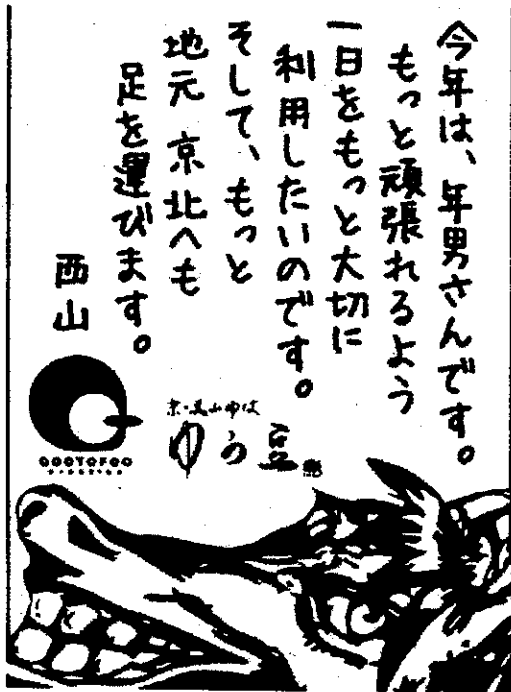 今年は、年男さんです。
もっと頑張れるよう
一日をもっと大切に
利用したいのです。
そして、もっと
地元 京北へも
足を運びます。
西山
京・美山ゆば
ゆう豆